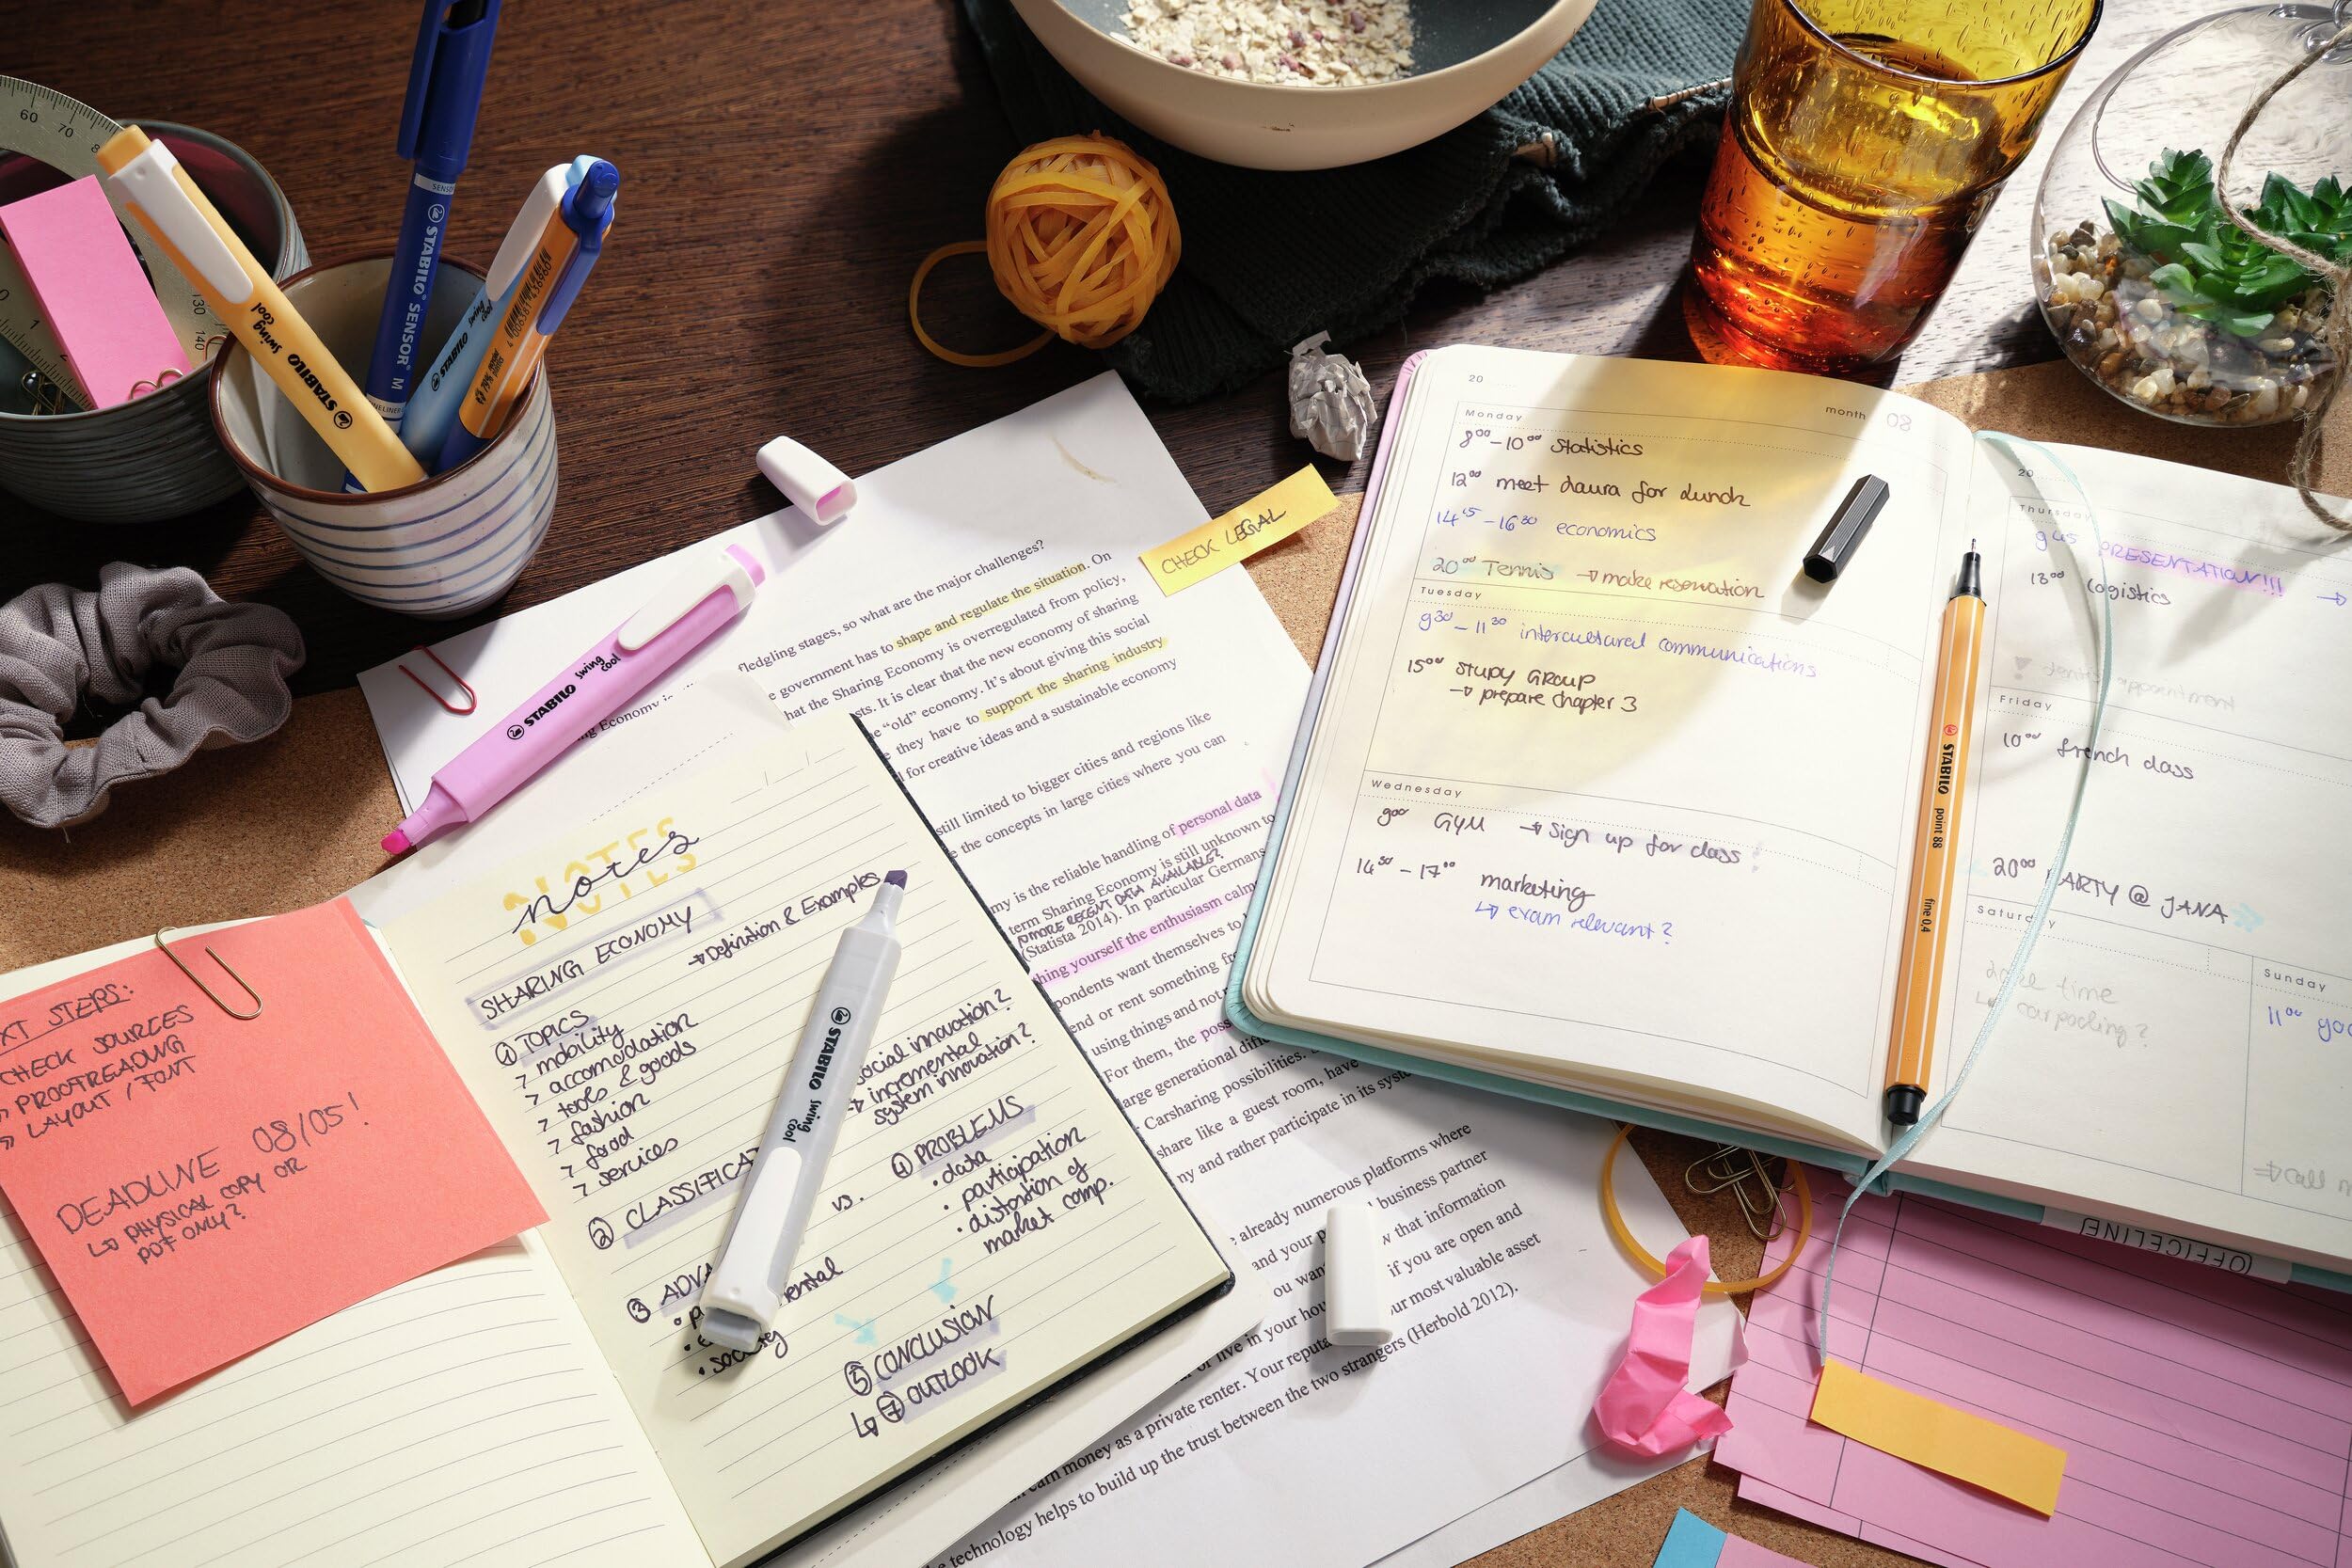 60
70
130
140
0
1
2
STABILO swing cool
STABILO SENSOR M
SENSOR
FINELINER
STABILO swing cool
4 006381 436960
STABILO swing cool
fledgling stages, so what are the major challenges?
government has to shape and regulate the situation. On
hat the Sharing Economy is overregulated from policy,
sts. It is clear that the new economy of sharing
"old" economy. It's about giving this social
they have to support the sharing industry
for creative ideas and a sustainable economy
still limited to bigger cities and regions like
e the concepts in large cities where you can
my is the reliable handling of personal data
term Sharing Economy is still unknown to
MORE RECENT DATA AVAILABLE?
(Statista 2014). In particular Germans
thing yourself the enthusiasm calm
pondents want themselves to
end or rent something
using things and not
For them, the
large generational
Carsharing possibilities.
share like a guest room, have
ny and rather participate in its
already numerous platforms where
and your business partner
that information
ou if you are open and
or live in your our most valuable asset
earn money as a private renter. Your
technology helps to build up the trust between the two strangers (Herbold 2012).
CHECK LEGAL
XT STEPS:
CHECK SOURCES
» PROOFREADING
» LAYOUT / FONT
DEADLINE 08/05!
↳ PHYSICAL COPY OR
PDF ONLY?
NOTES
notes
SHARING ECONOMY
→ Definition & Examples
① TOPICS
> mobility
> accomodation
> tools & goods
> fashion
> food
> services
social innovation?
→ incremental
system innovation?
② CLASSIFICAT
vs.
④ PROBLEMS
• data
• participation
• distortion of
market comp.
③ ADVA
ental
• society
⑤ CONCLUSION
↳ ⑦ OUTLOOK
STABILO swing cool
20
month 08
Monday
8⁰⁰-10⁰⁰ Statistics
12⁰⁰ meet Laura for Lunch
14¹⁵-16³⁰ economics
20⁰⁰ Tennis → make reservation
Tuesday
9³⁰-11³⁰ intercultured communications
15⁰⁰ STUDY GROUP
→ prepare chapter 3
Wednesday
9⁰⁰ GYM → Sign up for class!
14³⁰-17⁰⁰ marketing
↳ exam relevant?
STABILO point 88 fine 0,4
20
Thursday
9⁴⁵ PRESENTATION!!!
13⁰⁰ logistics
Friday
10⁰⁰ french class
20⁰⁰ PARTY @ JANA
Saturday
time
↳ carpooling?
Sunday
11⁰⁰
call
OFFICELINE